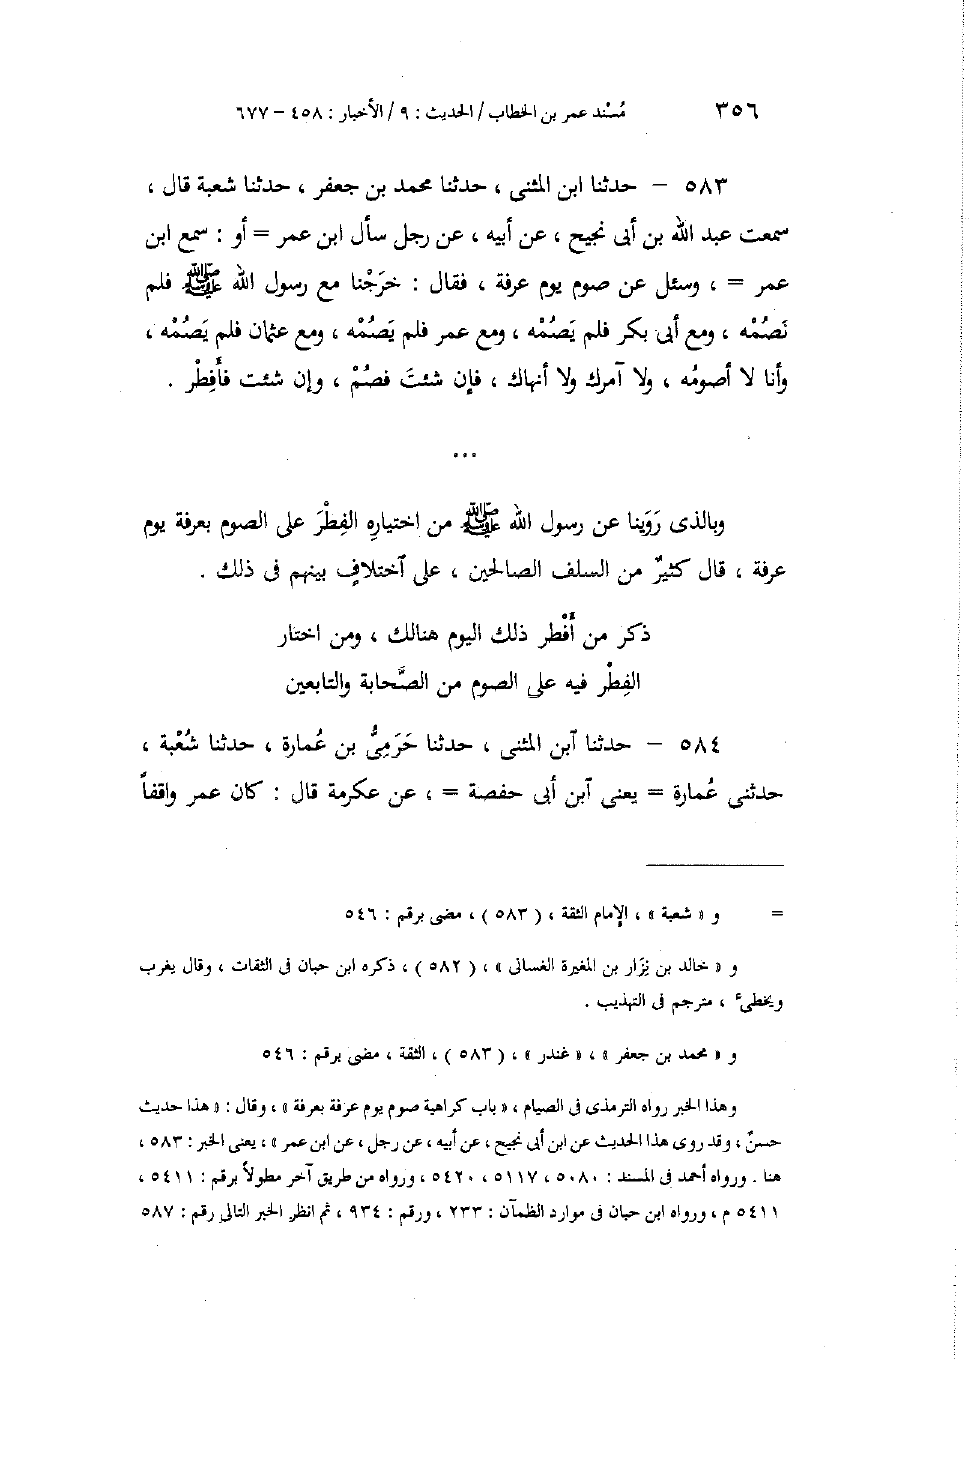 ٣٥٦ مُسْند عمر بن الخطاب / الحديث : ٩ / الأخبار : ٤٥٨ - ٦٧٧
٥٨٣ - حدثنا ابن المثنى ، حدثنا محمد بن جعفر ، حدثنا شعبة قال ،
سمعت عبد الله بن أبى نجيح ، عن أبيه ، عن رجل سأل ابن عمر = أو : سمع ابن
عمر = ، وسئل عن صوم يوم عرفة ، فقال : خرَجْنا مع رسول الله ﷺ فلم
نَصُمْه ، ومع أبى بكر فلم يَصُمْه ، ومع عمر فلم يَصُمْه ، ومع عثمان فلم يَصُمْه ،
وأنا لا أصومُه ، ولا آمرك ولا أنهاك ، فإن شئتَ فصُمْ ، وإن شئت فأَفِطْر .
...
وبالذى رَوَينا عن رسول الله ﷺ من اختيارِه الفِطْرَ على الصوم بعرفة يوم
عرفة ، قال كثيرٌ من السلف الصالحين ، على آختلافٍ بينهم فى ذلك .
ذكر من أَفْطر ذلك اليوم هنالك ، ومن اختار
الفِطْر فيه على الصوم من الصَّحابة والتابعين
٥٨٤ - حدثنا آبن المثنى ، حدثنا حَرَمِىُّ بن عُمارة ، حدثنا شُعْبة ،
حدثنى عُمارة = يعنى آبن أبى حفصة = ، عن عكرمة قال : كان عمر واقفاً
= و « شعبة » ، الإمام الثقة ، ( ٥٨٣ ) ، مضى برقم : ٥٤٦
و « خالد بن نِزَار بن المغيرة الغسانى » ، ( ٥٨٢ ) ، ذكره ابن حبان فى الثقات ، وقال يغرب
ويخطىء ، مترجم فى التهذيب .
و « محمد بن جعفر » ، « غندر » ، ( ٥٨٣ ) ، الثقة ، مضى برقم : ٥٤٦
وهذا الخبر رواه الترمذى فى الصيام ، « باب كراهية صوم يوم عرفة بعرفة » ، وقال : « هذا حديث
حسنٌ ، وقد روى هذا الحديث عن ابن أبى نجيح ، عن أبيه ، عن رجل ، عن ابن عمر » ، يعنى الخبر : ٥٨٣ ،
هنا . ورواه أحمد فى المسند : ٥٠٨٠ ، ٥١١٧ ، ٥٤٢٠ ، ورواه من طريق آخر مطولاً برقم : ٥٤١١ ،
٥٤١١ م ، ورواه ابن حبان فى موارد الظمآن : ٢٣٣ ، ورقم : ٩٣٤ ، ثم انظر الخبر التالى رقم : ٥٨٧